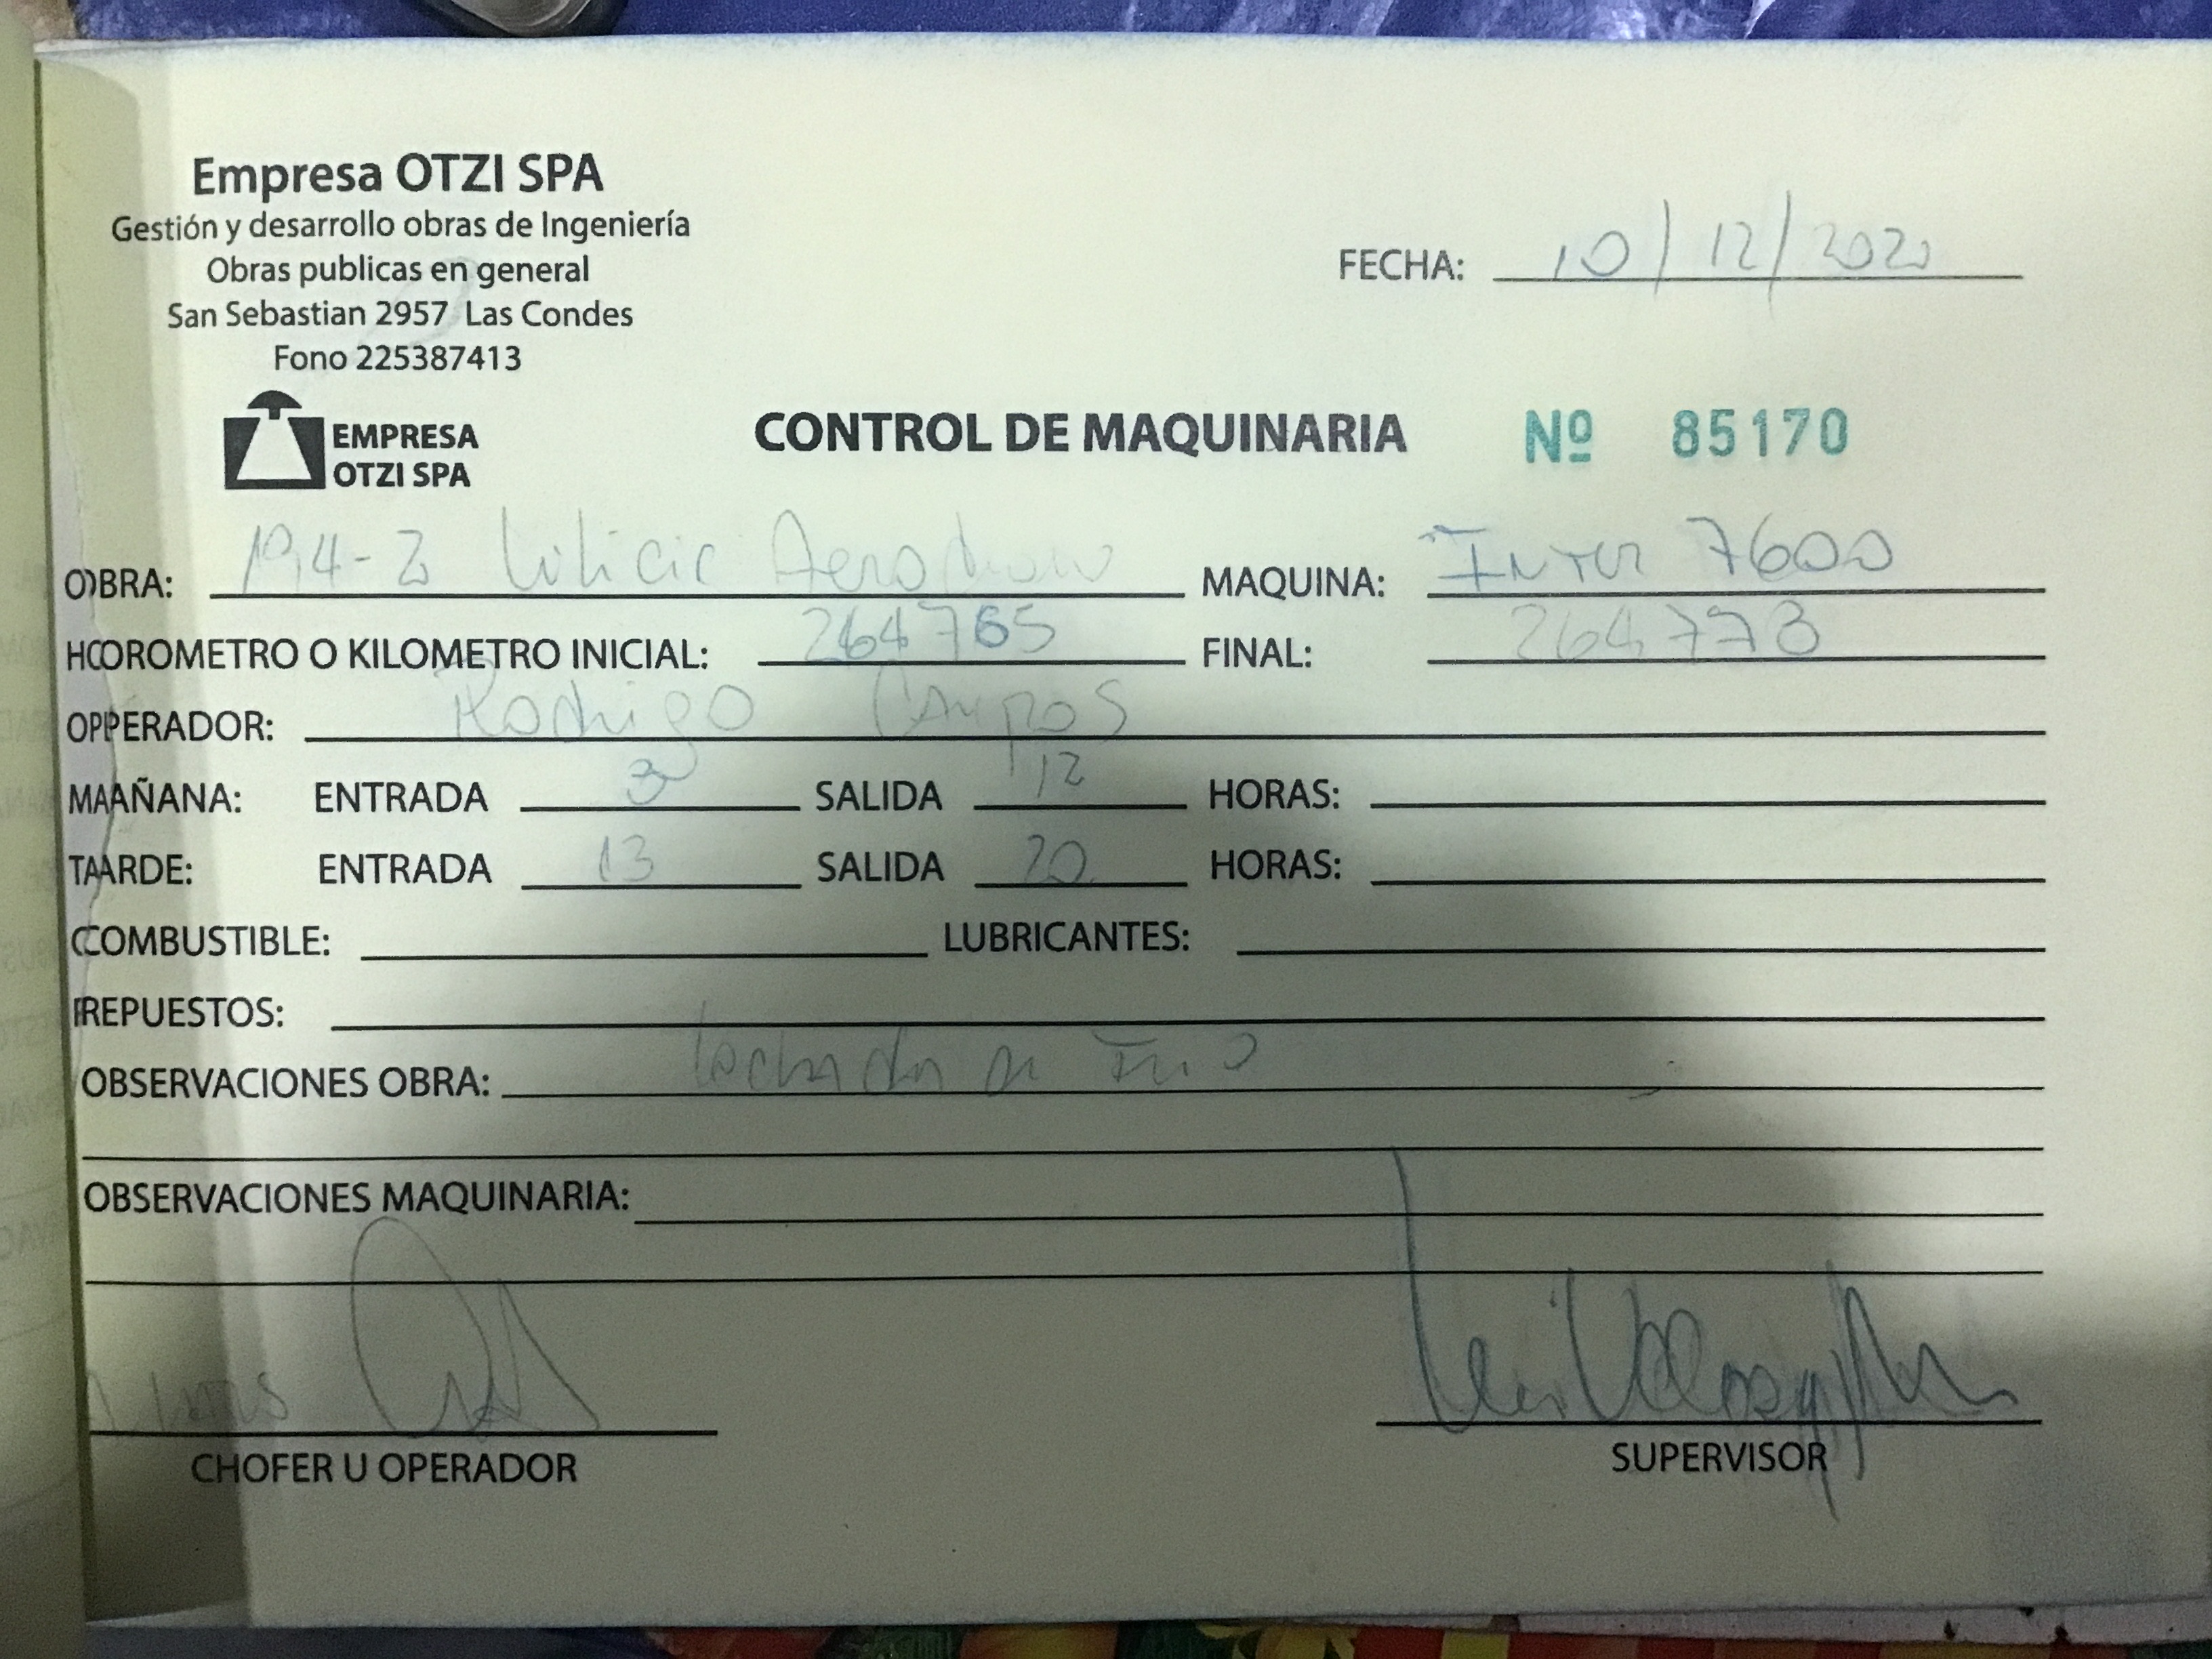 Empresa OTZI SPA
Gestión y desarrollo obras de Ingeniería
Obras publicas en general
San Sebastian 2957 Las Condes
Fono 225387413
FECHA: 10/12/2020
EMPRESA
OTZI SPA
CONTROL DE MAQUINARIA Nº 85170
OBRA: MAQUINA: Inter 7600
HOOROMETRO O KILOMETRO INICIAL: 264765 FINAL: 264773
OPPERADOR: Rodrigo Campos
MAAÑANA: ENTRADA SALIDA 12 HORAS:
TAARDE: ENTRADA 13 SALIDA 20 HORAS:
COMBUSTIBLE: LUBRICANTES:
RREPUESTOS:
OBSERVACIONES OBRA:
OBSERVACIONES MAQUINARIA:
CHOFER U OPERADOR
SUPERVISOR